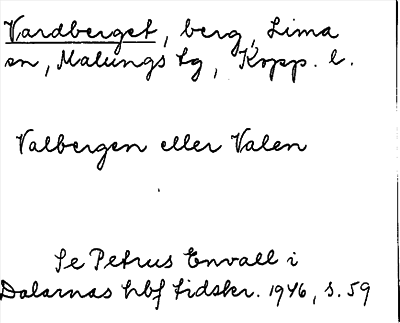 Vardberget, berg, Lima
sn, Malungs tg, Kopp. l.
Valbergen eller Valen
Se Petrus Envall i
Dalarnas hbf tidskr. 1946, s. 59